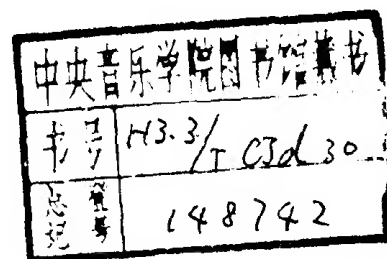 中央音乐学院图书馆藏书
书号 H3.3/T C3d 30
总登记号 148742